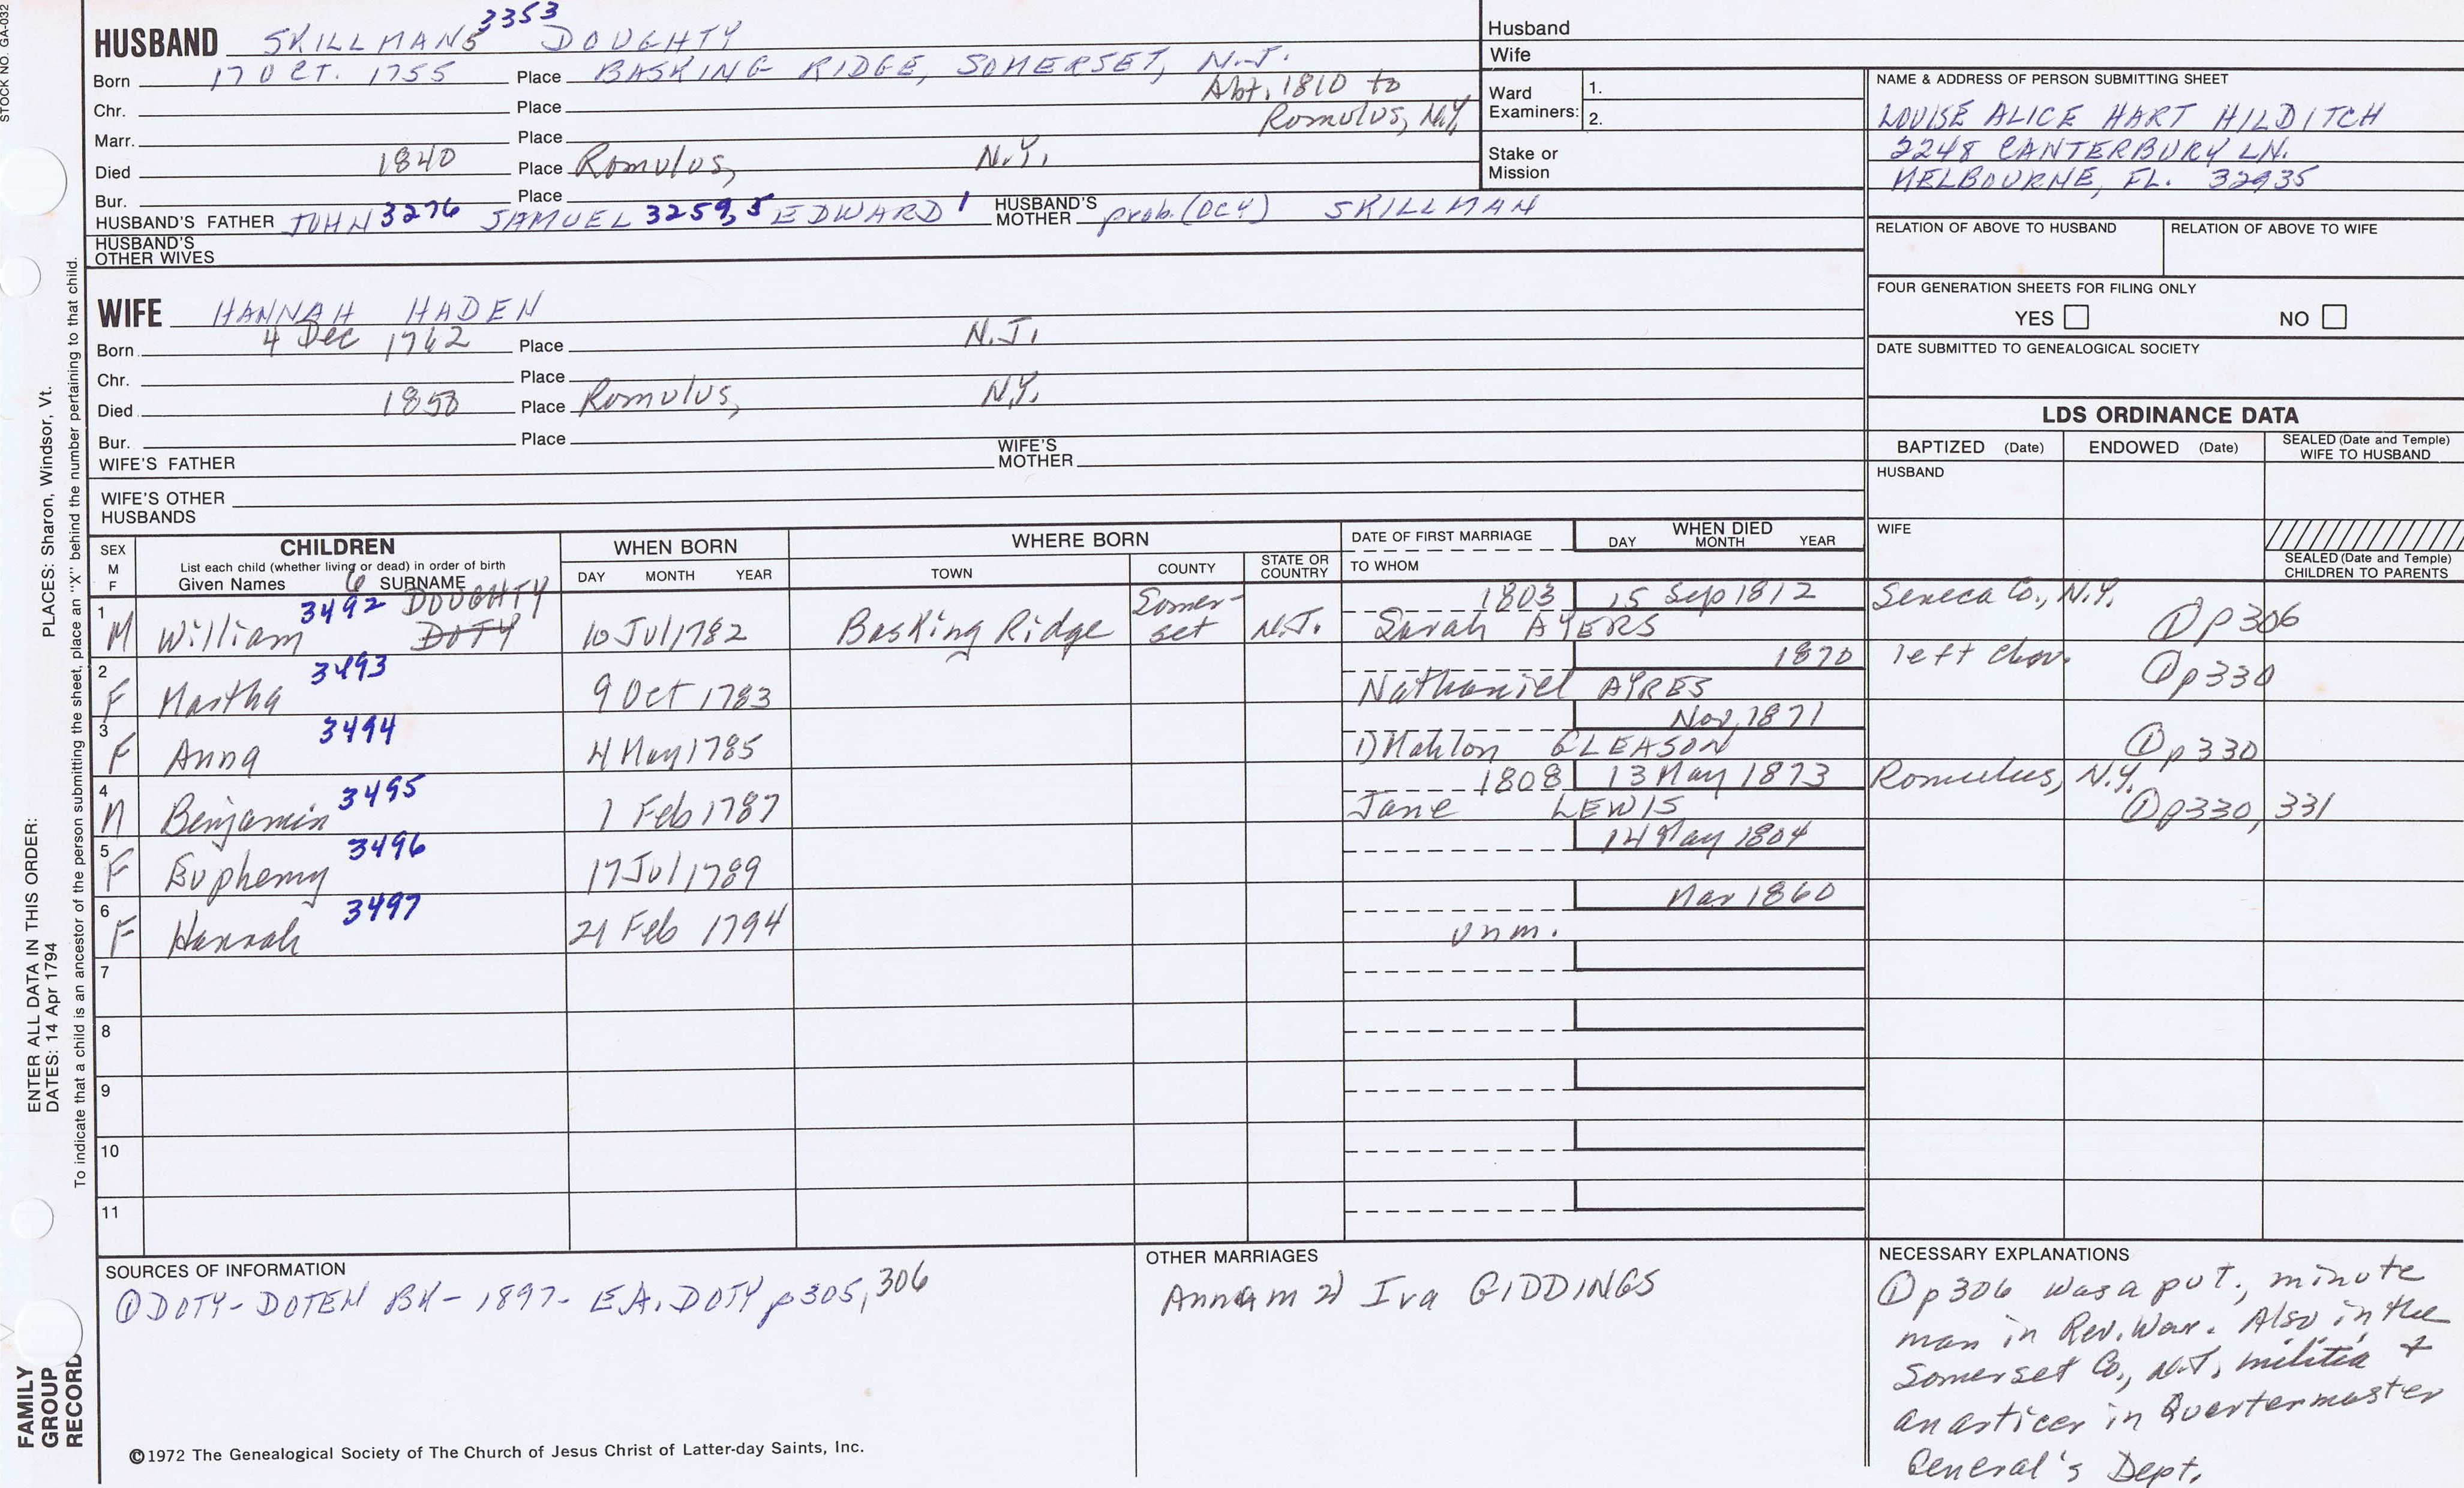 STOCK NO. GA-032
HUSBAND SKILLMAN 5 3353 DOUGHTY
Born 17 OCT. 1755 Place BASKING RIDGE, SOMERSET, N.J.
Chr. Place Abt. 1810 to
Marr. Place Romulus, N.Y.
Died 1840 Place Romulus, N.Y.
Bur. Place
HUSBAND'S FATHER JOHN 3276 SAMUEL 3259,5 EDWARD 1 HUSBAND'S MOTHER prob. (DCY) SKILLMAN
HUSBAND'S OTHER WIVES
WIFE HANNAH HADEN
Born 4 Dec 1762 Place N.J.
Chr. Place
Died 1850 Place Romulus, N.Y.
Bur. Place
WIFE'S FATHER WIFE'S MOTHER
WIFE'S OTHER HUSBANDS
Husband
Wife
Ward Examiners: 1.
2.
Stake or Mission
NAME & ADDRESS OF PERSON SUBMITTING SHEET
LOUISE ALICE HART HILDITCH
2248 CANTERBURY LN.
MELBOURNE, FL. 32935
RELATION OF ABOVE TO HUSBAND RELATION OF ABOVE TO WIFE
FOUR GENERATION SHEETS FOR FILING ONLY
YES NO
DATE SUBMITTED TO GENEALOGICAL SOCIETY
LDS ORDINANCE DATA
BAPTIZED (Date) ENDOWED (Date) SEALED (Date and Temple) WIFE TO HUSBAND
HUSBAND
WIFE
SEALED (Date and Temple) CHILDREN TO PARENTS
SEX M F
CHILDREN
List each child (whether living or dead) in order of birth
Given Names 6 SURNAME
WHEN BORN DAY MONTH YEAR
WHERE BORN TOWN COUNTY STATE OR COUNTRY
DATE OF FIRST MARRIAGE
TO WHOM
WHEN DIED DAY MONTH YEAR
1 M William 3492 DOUGHTY DOTY 10 Jul 1782 Basking Ridge Somer-set N.J. 1803 Sarah AYERS 15 Sep 1812 Seneca Co., N.Y. ① p306
2 F Martha 3493 9 Oct 1783 Nathaniel AYRES 1870 left chn. ① p330
3 F Anna 3494 4 May 1785 1) Mahlon GLEASON Nov 1871 ① p330
4 M Benjamin 3495 1 Feb 1787 1808 Jane LEWIS 13 May 1873 Romulus, N.Y. ① p330, 331
5 F Euphemy 3496 17 Jul 1789 14 May 1804
6 F Hannah 3497 21 Feb 1794 unm. Mar 1860
7
8
9
10
11
SOURCES OF INFORMATION
① DOTY-DOTEN BK - 1897 - E.A. DOTY p305, 306
OTHER MARRIAGES
Anna m 2) Iva GIDDINGS
NECESSARY EXPLANATIONS
① p306 was a pvt., minute
man in Rev. War. Also in the
Somerset Co., N.J. militia &
an artificer in Quartermaster
General's Dept.
©1972 The Genealogical Society of The Church of Jesus Christ of Latter-day Saints, Inc.
ENTER ALL DATA IN THIS ORDER:
DATES: 14 Apr 1794 PLACES: Sharon, Windsor, Vt.
To indicate that a child is an ancestor of the person submitting the sheet, place an "X" behind the number pertaining to that child.
FAMILY
GROUP
RECORD